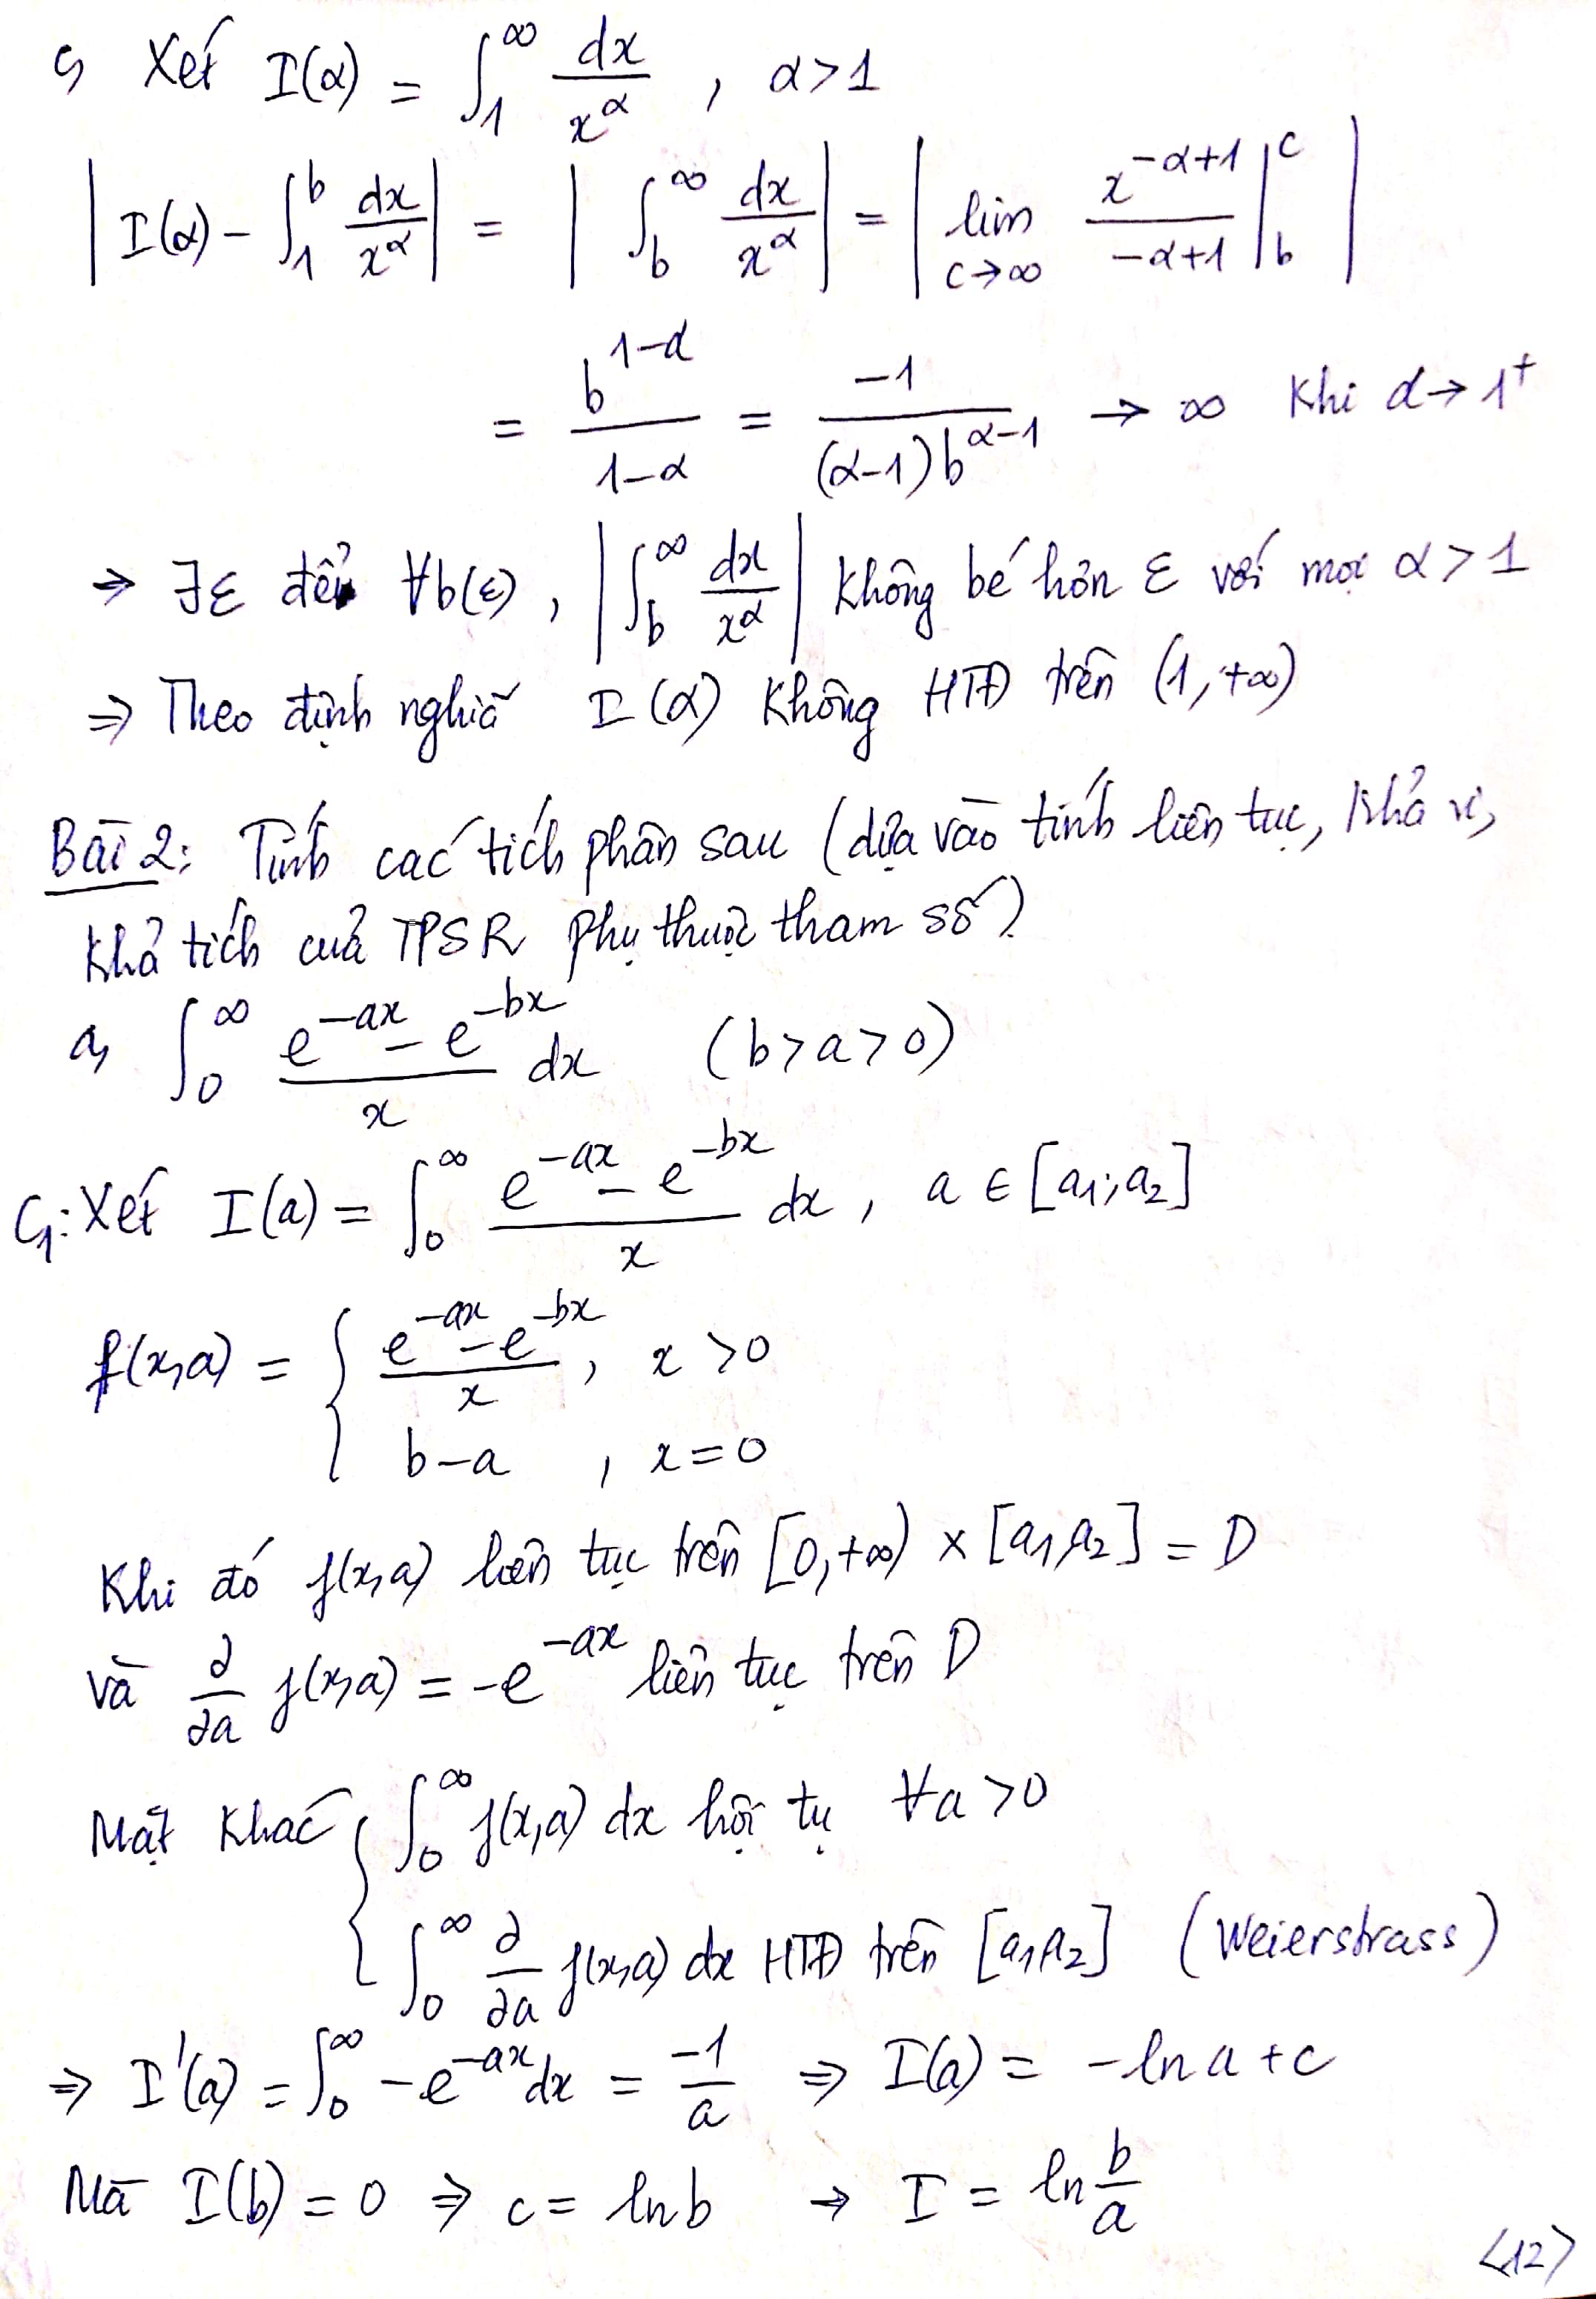 c, Xét I(α) = ∫_1^∞ dx/x^α , α>1
|I(α) - ∫_1^b dx/x^α| = |∫_b^∞ dx/x^α| = |lim_{c→∞} x^{-α+1}/(-α+1) |_b^c|
= b^{1-α}/(1-α) = -1/((α-1)b^{α-1}) → ∞ khi α→1⁺
⇒ ∃ε để ∀b(ε), |∫_b^∞ dx/x^α| không bé hơn ε với mọi α>1
⇒ Theo định nghĩa I(α) không HTĐ trên (1,+∞)
Bài 2: Tính các tích phân sau (dựa vào tính liên tục, khả vi,
khả tích của TPSR phụ thuộc tham số)
a, ∫_0^∞ (e^{-ax} - e^{-bx})/x dx (b>a>0)
C1: Xét I(a) = ∫_0^∞ (e^{-ax} - e^{-bx})/x dx, a ∈ [a₁; a₂]
f(x,a) = { (e^{-ax} - e^{-bx})/x , x>0
b-a , x=0
Khi đó f(x,a) liên tục trên [0,+∞) × [a₁,a₂] = D
và ∂/∂a f(x,a) = -e^{-ax} liên tục trên D
Mặt khác { ∫_0^∞ f(x,a) dx hội tụ ∀a>0
∫_0^∞ ∂/∂a f(x,a) dx HTĐ trên [a₁,a₂] (Weierstrass)
⇒ I'(a) = ∫_0^∞ -e^{-ax}dx = -1/a ⇒ I(a) = -ln a + c
Mà I(b) = 0 ⇒ c = ln b → I = ln b/a
<12>